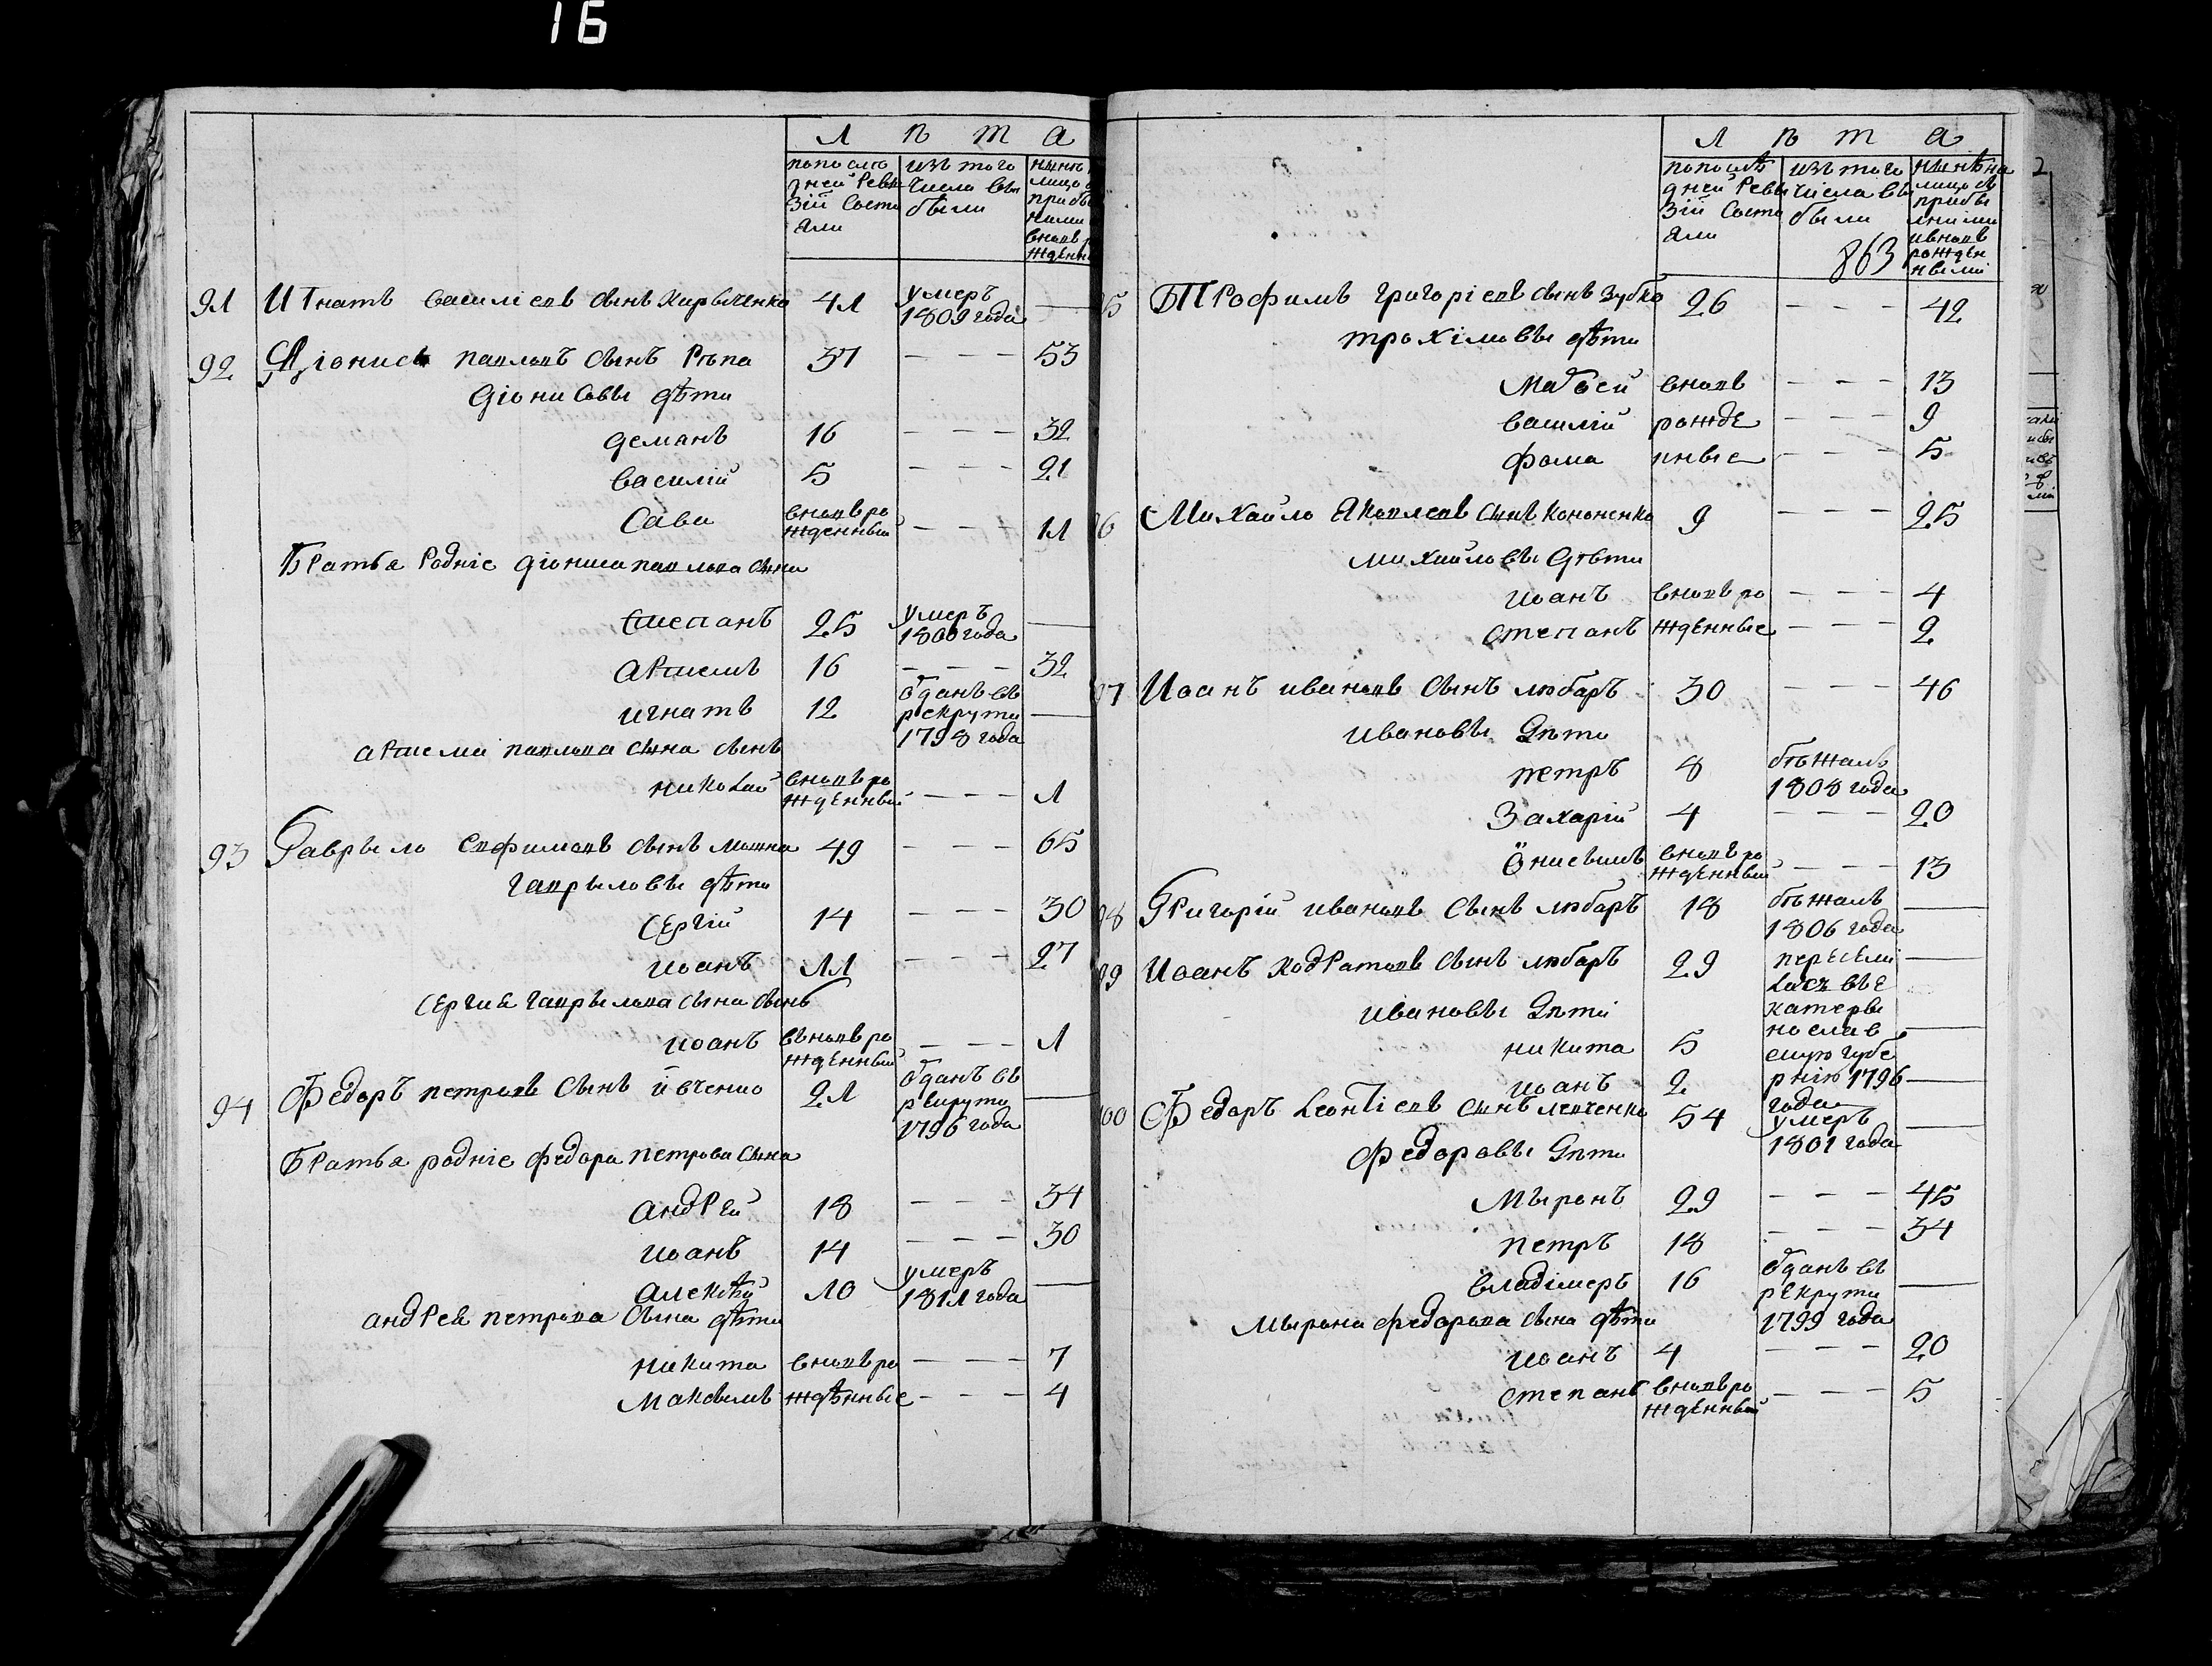 16
Л ѣ т а
попослѣ
дней Реви
зіи Состо
яли
изъ того
числа вы
были
863
91 Игнатъ василіевъ сынъ Кирыченко 41 умеръ 1809 года —
92 Діонисъ павловъ сынъ Рѣпа 37 — — — 53
діонисовы дѣти
деманъ 16 — — — 32
василій 5 — — — 21
Сава вновь рожденный — — — 11
Братья Родніе діониса павлова сына
Степанъ 25 умеръ 1800 года —
артиемъ 16 — — — 32
игнатъ 12 отданъ въ рекруты 1798 года —
артиема павлова сына сынъ
николай вновь рожденный — — — 1
93 Гаврыло Евфимовъ сынъ мошна 49 — — — 65
гаврыловы дѣти
Сергій 14 — — — 30
иоанъ 11 — — — 27
Сергия гаврылова сына сынъ
иоанъ вновь рожденный — — — 1
94 Федоръ петровъ сынъ ивченко 21 отданъ въ рекруты 1796 года —
Братья родніе федора петрова сына
андрей 18 — — — 34
иоанъ 14 — — — 30
алексѣй 10 умеръ 1811 года —
андрея петрова сына дѣти
никита вновь ро — — — 7
максимъ жденные — — — 4
Л ѣ т а
попослѣ
дней Реви
зіи Состо
яли
изъ того
числа вы
были
нынѣ на
лицо съ
прибы
лыми
ивновь
рожден
ными
5 Трофимъ григоріевъ сынъ Зубко 26 — — — 42
трохімовы дѣти
матвей вновь — — — 13
василій рожде — — — 9
фома нные — — — 5
6 Михайло Яковлевъ сынъ Кононенко 9 — — — 25
михайловы дѣти
иоанъ вновь ро — — — 4
степанъ жденные — — — 2
97 Иоанъ ивановъ сынъ любаръ 30 — — — 46
ивановы дѣти
петръ 8 бѣжалъ 1808 года
Захарій 4 — — — 20
Онисимъ вновь рожденный — — — 13
98 Григорій ивановъ сынъ любаръ 18 бѣжалъ 1806 года —
99 Иоанъ кодратовъ сынъ любаръ 29 переселилась въ Екатерынославскую губернію 1796 года —
ивановы дѣти
никита 5 —
иоанъ 2 —
100 Федоръ Леонтіевъ сынъ левченко 54 умеръ 1801 года —
федоровы дѣти
Мыронъ 29 — — — 45
петръ 18 — — — 34
владімеръ 16 отданъ въ рекруты 1799 года —
мырона федорова сына дѣти
иоанъ 4 — — — 20
степанъ вновь рожденный — — — 5